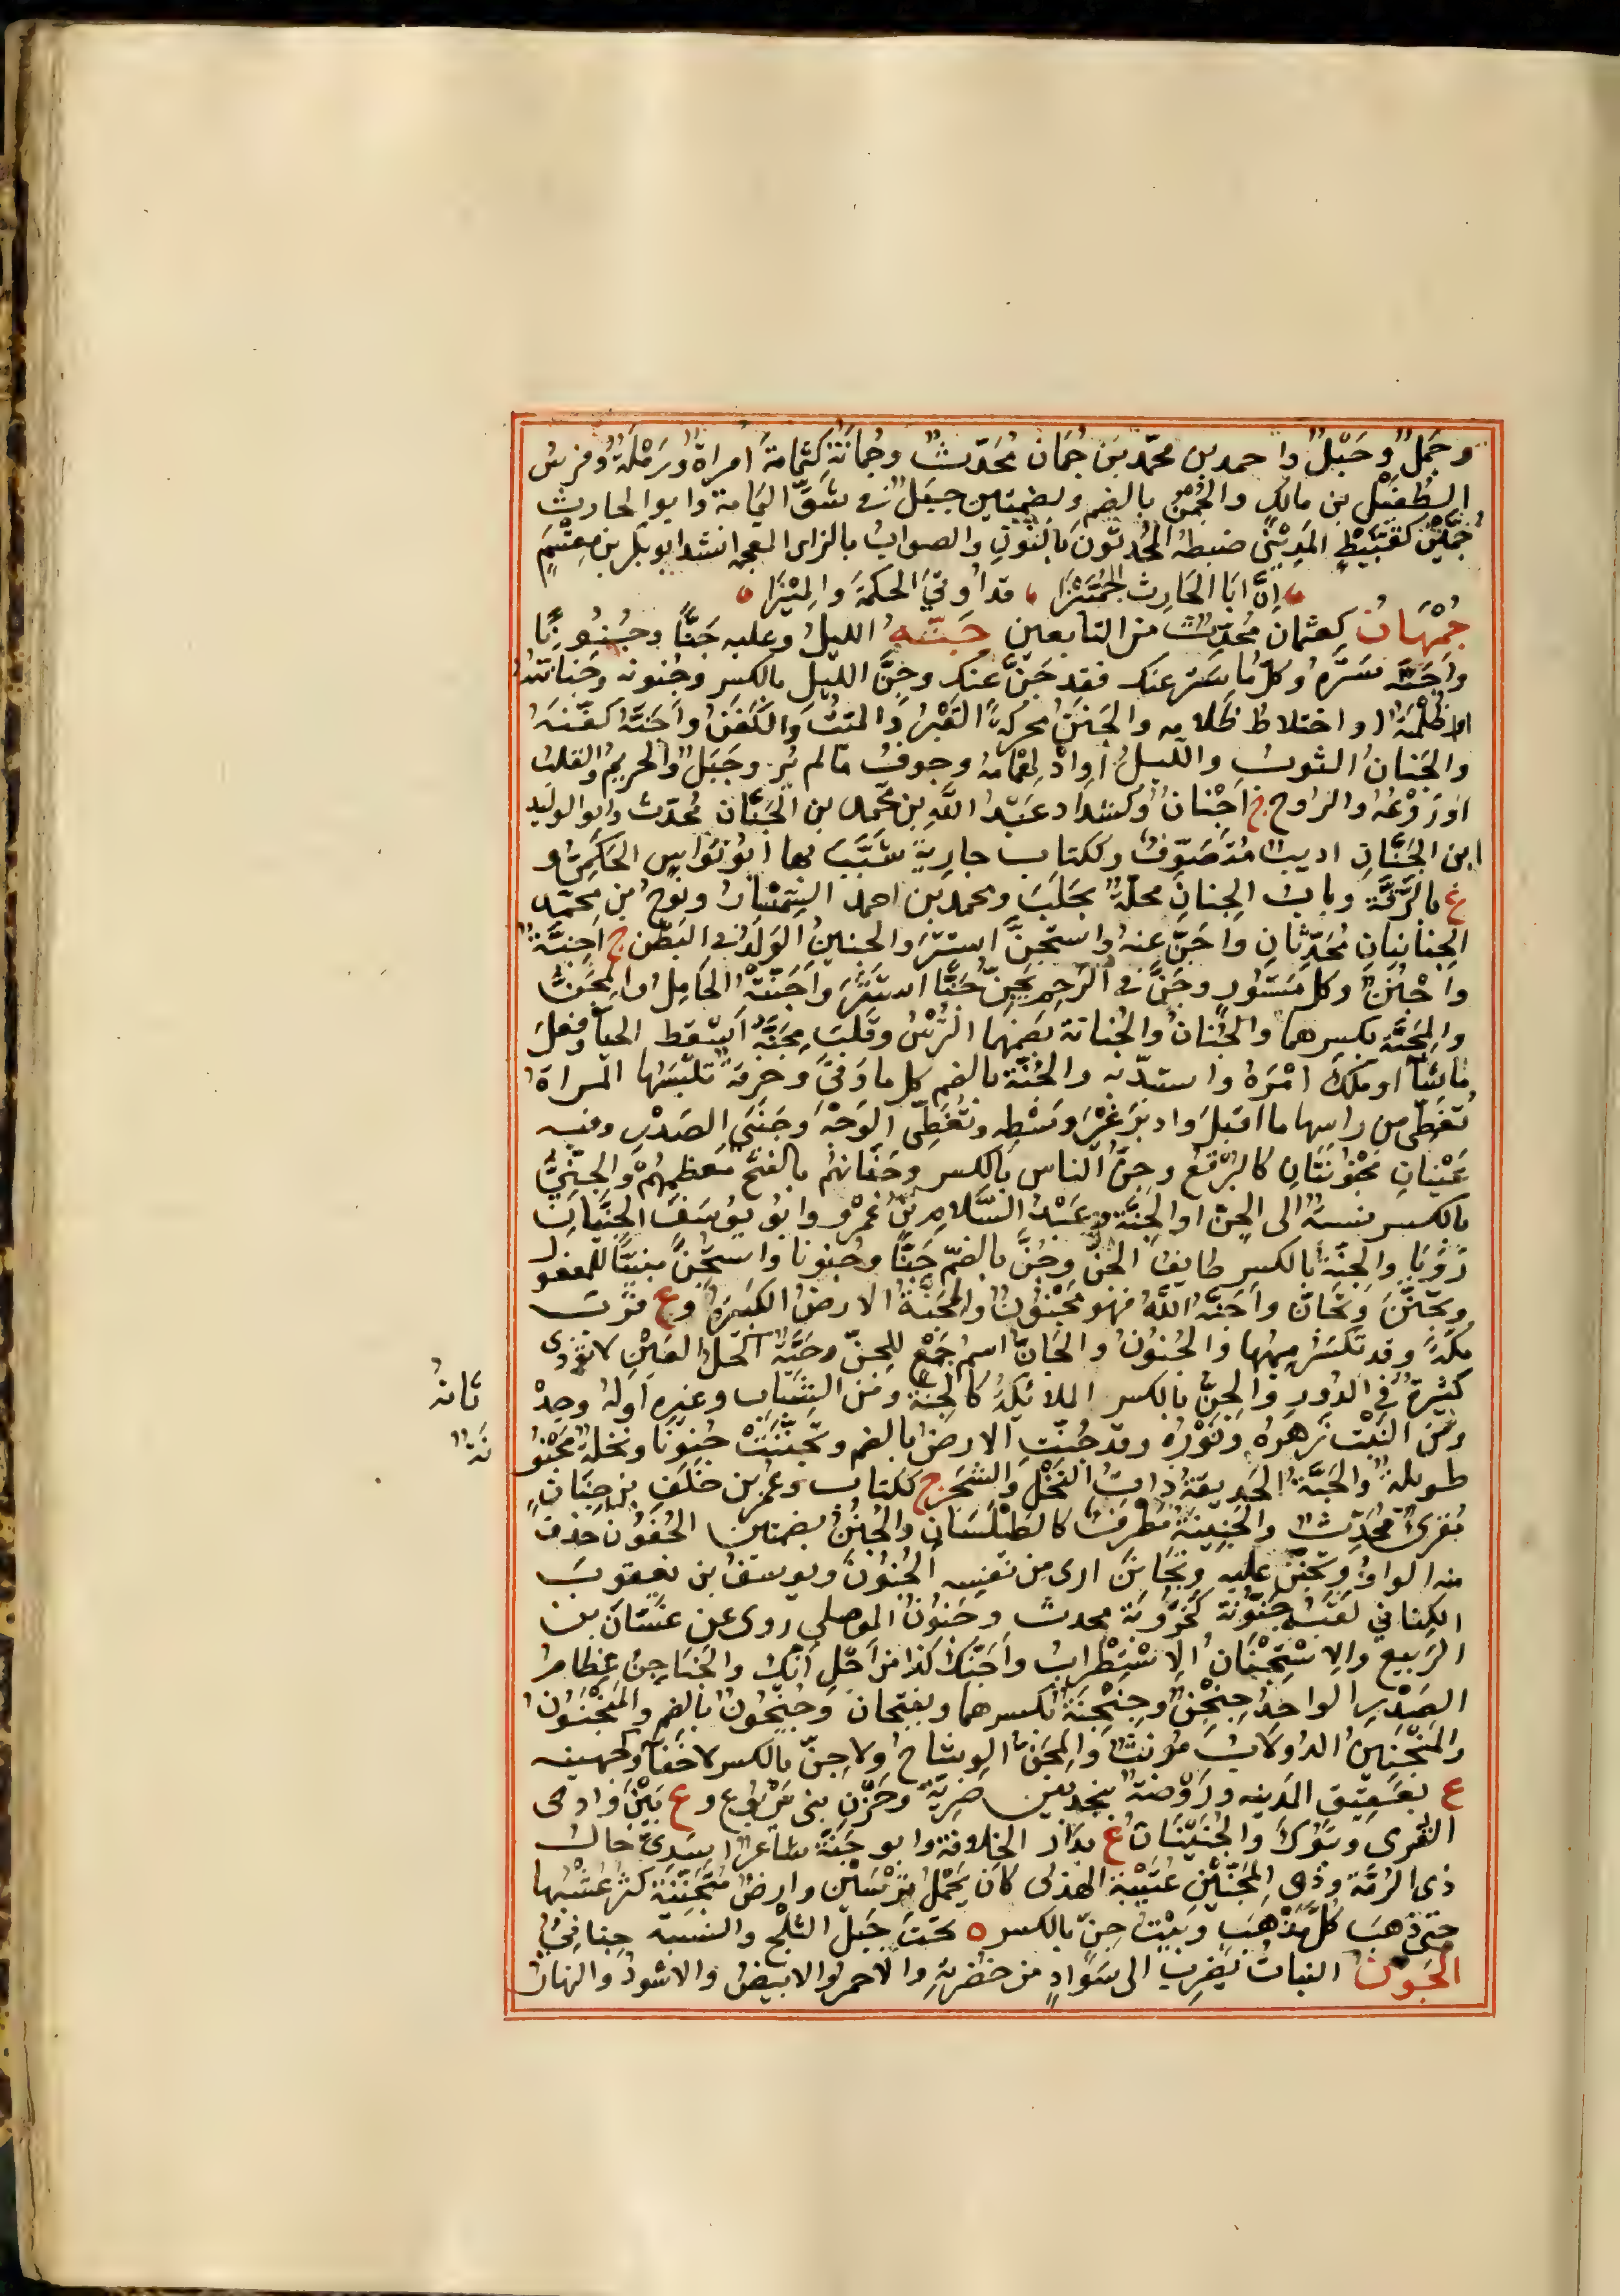 وجَمَلٌ وجَبَلٌ واحمد بن محمّد بن جُمَان مُحَدّثٌ وجُمانَة كثُمامَة امراةٌ ورَمْلَةٌ وفرسُ
الطُفَيْل بن مالك والجُمْنُ بالضم وبضمتين جبَلٌ في شقّ اليَمامة وابو الحارث
جُمَّيْن كقُبَّيْطٍ المَدِيْنيّ ضبطهُ المُحدثونَ بالنُّون والصوابُ بالزاى المعجمه انشد ابو بكر بن مِقْسَمٍ
إنَّ ابَا الحَارِث الجُمَّيْزَا قد اُوتيَ الحكمَةَ والمَيْزَا
جُمْهَانُ كعثمان مُحَدّثٌ من التابعين جَنَّهُ الليلُ وعليه جَنًّا وجُنُونًا
واجَنَّه سَتَرهُ وكلّ ما سَتَر عنك فقد جَنَّ عنك وجِنُّ الليل بالكسر وجُنونه وجَنانُهُ
ظُلْمَتُه او اختلاطُ ظَلامه والجَنَنُ محركةً القَبْرُ والميّتُ والكَفَنُ واَجَنَّهُ كفّنهُ
والجَنانُ الثوبُ واللّيلُ او ادْلِهْمامُهُ وجوفُ ما لم تَر وجَبَلٌ والحريمُ والقلبُ
او رَوْعُهُ والروح ج اجْنانٌ وكشدّاد عَبْدُ اللّه بن محّمد بن الجَنّان مُحَدّثٌ وابو الوليد
ابن الجَنّان اديبٌ مُتصَوّفٌ وككتاب جاريةٌ شَبَّبَ بها ابُو نُوَاسٍ الحَكَمِىُّ و
ع بالرَّقّة وبابُ الجِنانِ محلّةٌ بحَلَبَ ومحمد بن احمد السِمْسارُ ونوحُ بن محمّد
الجِنانيانِ مُحَدّثانِ واجَنّ عنهُ واستَجنَّ استترَ والجنينُ الوَلَدُ فى البَطْن ج اجِنّةٌ
واجْنُنٌ وكلّ مَسْتُورٍ وجَنَّ فى الرَحِمِ يَجِنّ جَنًّا استَتَرَ واَجَنَّتْهُ الحَامِلُ والمِجَنُّ
والمِجَنّة بكسرهما والجُنانُ والجُنانة بضمّهما التُّرْسُ وقَلَبَ مِجَنَّهُ اَسْقط الحياَ وفعلَ
ما شاَ او ملكَ امْرَهُ واستبدّ به والجُنَّة بالضم كل ما وَقىَ وخِرقةٌ تلبَسُها المراةُ
تُغَطّى من راسها ما اقبلَ وادبَرَ غيْرَ وسْطِه وتُغطِّى الوَجْهَ وجَنبَى الصَدْرِ وفيه
عَيْنانِ مَجْوُبَتَانِ كالبُرْقع وجِنُّ الناس بالكسر وجَنَانهُم بالفتح مُعظمهُمْ والجِنِّىُّ
بالكسر نسبةٌ الى الجِنّ او الجِنّة وعَبْدُ السَّلامِ بنُ عَمْرو وابو يُوسَفَ الجِنّيّانِ
رَوَيا والجِنّةُ بالكسر طايفُ الجنّ وجُنَّ بالضمّ جَنًّا وجُنونا واستُجِنَّ مبنيًّا للمفعول
وتَجَنّنَ وتَجانَّ واَجَنَّهُ اللَّهُ فهو مَجْنُونٌ والمَجَنّةُ الارضُ الكثيرةُ وع قُرْبَ
مكّةَ وقد تكسَرُ مِيمُها والجُنُونُ والجَانُّ اسمُ جَمْعٍ للجنّ وحَيّةٌ اكحَلُ العَيْنِ لا تُؤذى
كثيرةٌ في الدُورِ والجِنُّ بالكسر الملائكةُ كالجِنّة ومن الشَبَابِ وغيره اولهُ وحِدْ
ثانهُ
ومنَ النَبْت زَهرهُ ونَوْرُه وقد جُنّت الارضُ بالضم وتَجَنَّنَتْ جُنونًا ونخلةٌ مَجْنُو
نَةٌ
طويلةٌ والجَنَّةُ الحَديقةُ ذاتُ النَخْل والشجر ج ككتاب وعُمر بن خَلَفِ بن جِنَانٍ
مُقرىٌ مُحَدّثٌ والجَنِينَةُ مُطْرَفٌ كالطَيْلَسَانِ والجُنُنُ بضمتين الجُنُونُ حذف
منه الواوُ وتجنّن عليه وتَجَانَنَ ارى من نَفْسِه الجُنُونَ ويوسفُ بن يعقوبَ
الكناني لقبُه جَنُّونَة كخَرُّوبَة محدث وحَنُون الموصلى روى عن غَسّانَ بن
الرَبيع والاِسْتِجْنَانُ الاِسْتِطْرابُ واَجَنّكَ كذا من اَجْلِ اَنّكَ والجَنَاجِنُ عِظامُ
الصَدْرِ الواحدُ جِنْجِنٌ وجِنْجِنَةٌ بكسرهما ويفتحان وجُنْجُونٌ بالضم والمَنْجَنُونُ
والمَنْجَنِينُ الدُولابُ مُؤنثٌ والمِجَنُّ الوِشاحُ ولا جِنَّ بالكسر لا خفاَ وكجهينه
ع بعَقِيقِ المَدينه ورَوْضةٌ بنجدٍ بين ضَريّةَ وحَزْن بنى يَرْبُوع وع بَيْنَ وادى
القُرى وتَبُوكَ والجُنَيْنَاتُ ع بدار الخلافة وابو جَنّةَ شاعرٌ اسَدىّ خالُ
ذى الرُمَّة وذو المِجَنَّيْن عُتَيْبةُ الهذلى كان يَحْمِلُ تُرْسَيْنِ وارضٌ مُتجنّنَةٌ كثر عُشْبُها
حتى ذهَبَ كلَّ مَذْهَبٍ وبَيْتُ جِنّ بالكسر ة تحتَ جَبَل الثلْج والنسبة جِنانىٌّ
الجَوْنُ النباتُ يَضربُ الى سَوَادٍ من خضرتهِ والاحمر والابيضُ والاسْودُ والنهارُ